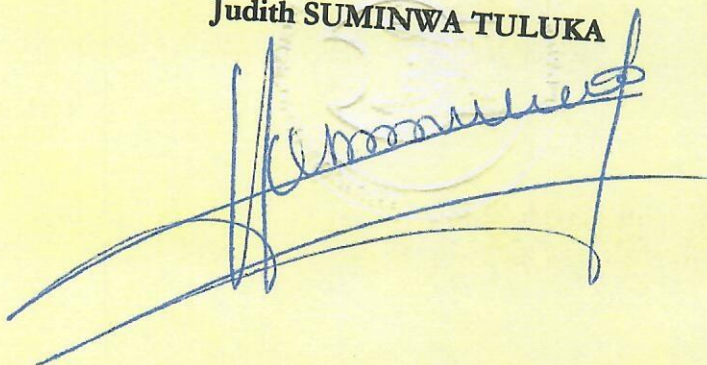 Judith SUMINWA TULUKA